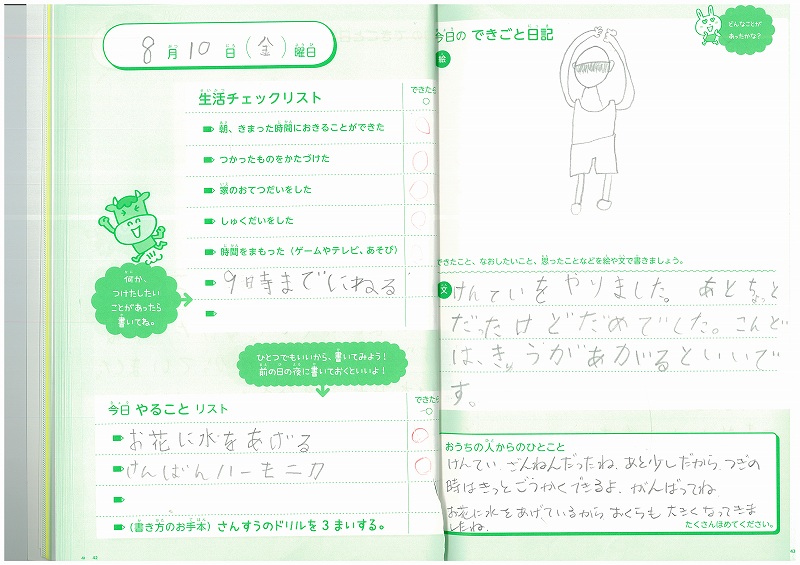 8月10日(金)曜日
生活チェックリスト
できたら
○
朝、きまった時間におきることができた
つかったものをかたづけた
家のおてつだいをした
しゅくだいをした
時間をまもった(ゲームやテレビ、あそび)
9時までにねる
何か、
つけたしたい
ことがあったら
書いてね。
ひとつでもいいから、書いてみよう!
前の日の夜に書いておくといいよ!
今日 やること リスト
できたら
○
お花に水をあげる
けんばんハーモニカ
(書き方のお手本)さんすうのドリルを3まいする。
42
今日の できごと日記
どんなことが
あったかな?
絵
できたこと、なおしたいこと、思ったことなどを絵や文で書きましょう。
文
けんていをやりました。あとちょっと
だったけどだめでした。こんど
は、きゅうがあがるといいで
す。
おうちの人からのひとこと
けんてい、ざんねんだったね、あと少しだから、つぎの
時はきっとごうかくできるよ、がんばってね
お花に水をあげているから おくらも 大きくなってきま
したね、
たくさんほめてください。
43